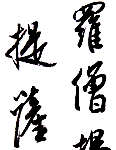 羅僧揭
提薩